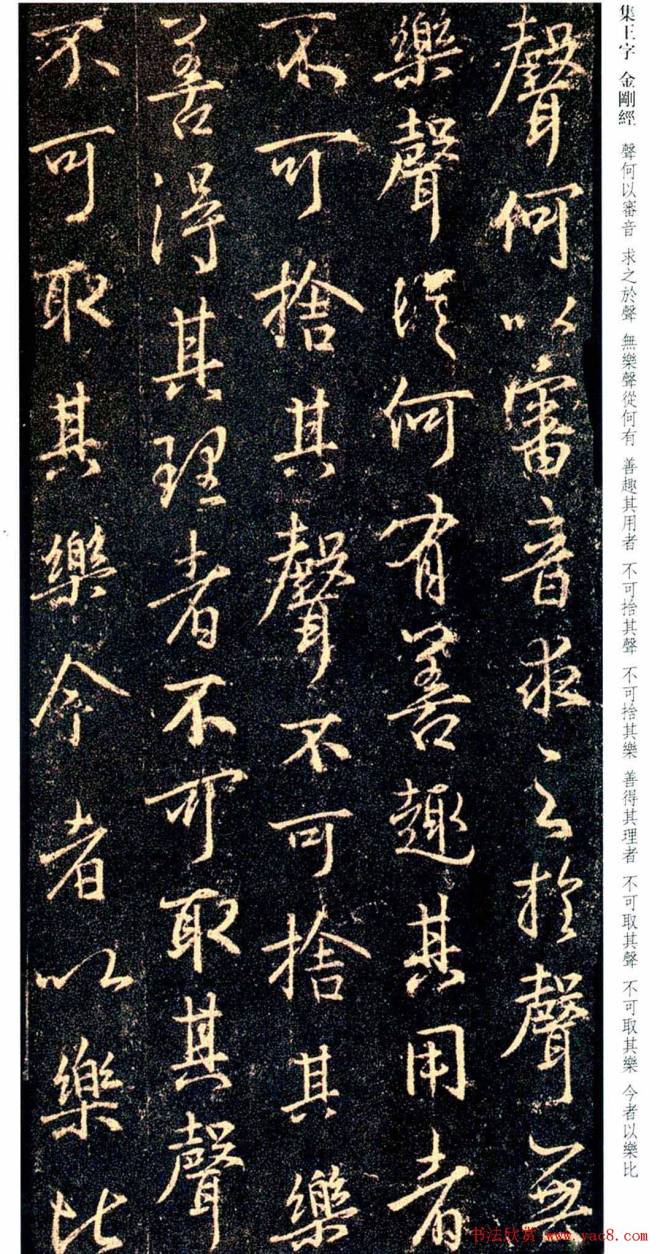 集王字 金剛經 聲何以審音 求之於聲 無樂聲從何有 善趣其用者 不可捨其聲 不可捨其樂 善得其理者 不可取其聲 不可取其樂 今者以樂比
聲何以審音求之於聲無
樂聲從何有善趣其用者
不可捨其聲不可捨其樂
善得其理者不可取其聲
不可取其樂今者以樂比
书法欣赏 www.yac8.com